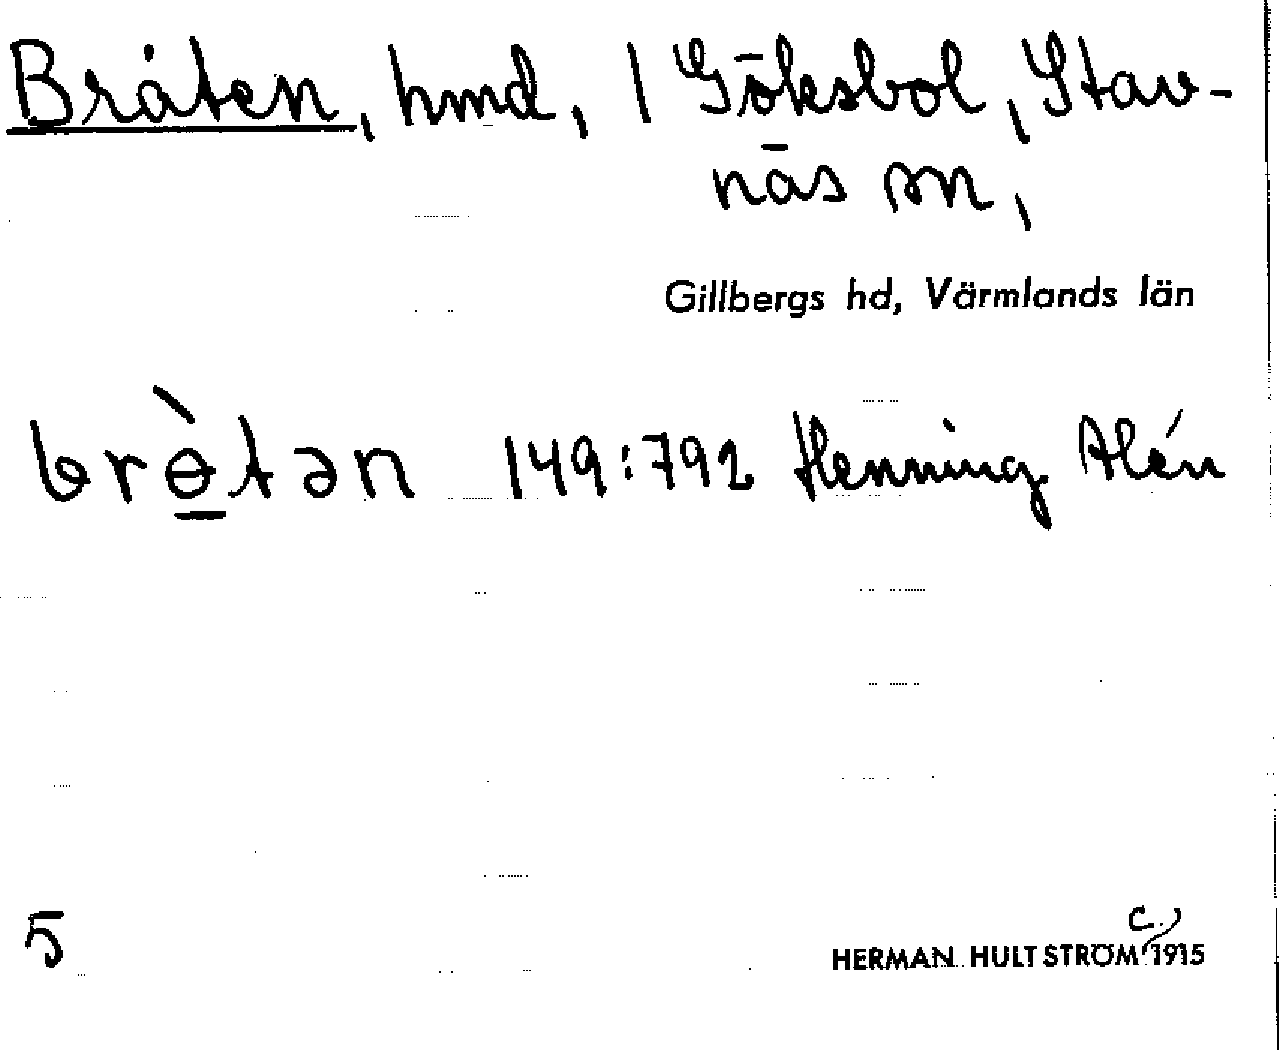 Bråten, hmd, 1 Göksbol, Stav-
näs sn,
Gillbergs hd, Värmlands län
brɵ̀tən 149:792 Henning Alén
5
c.
HERMAN HULTSTRÖM 1915